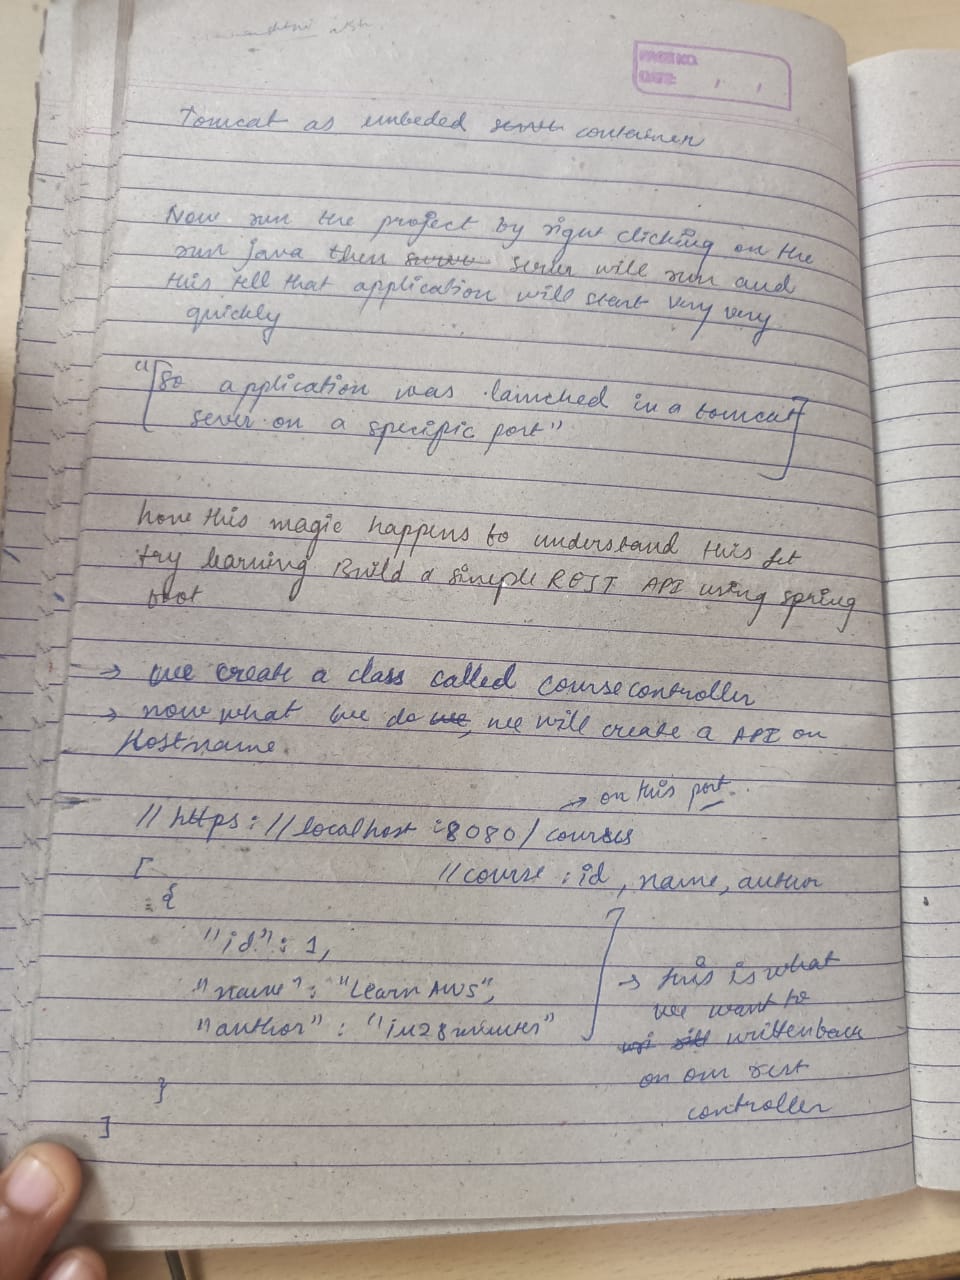 PAGE NO.
DATE: / /
Tomcat as embeded container
Now run the project by right clicking on the
run java then server will run and
this tell that application will start very very
quickly
"[So application was launched in a tomcat
sever on a specific port"]
how this magic happens to understand this let
try learning Build a simple REST API using spring
boot
→ we create a class called coursecontroller
→ now what we do we, we will create a API on
Hostname.
→ on this port.
// https://localhost:8080/courses
[ //course : id, name, author
{
"id": 1,
"name": "Learn AWS",
"author": "in28minutes"
→ this is what
we want to
written back
on our rest
controller
}
]